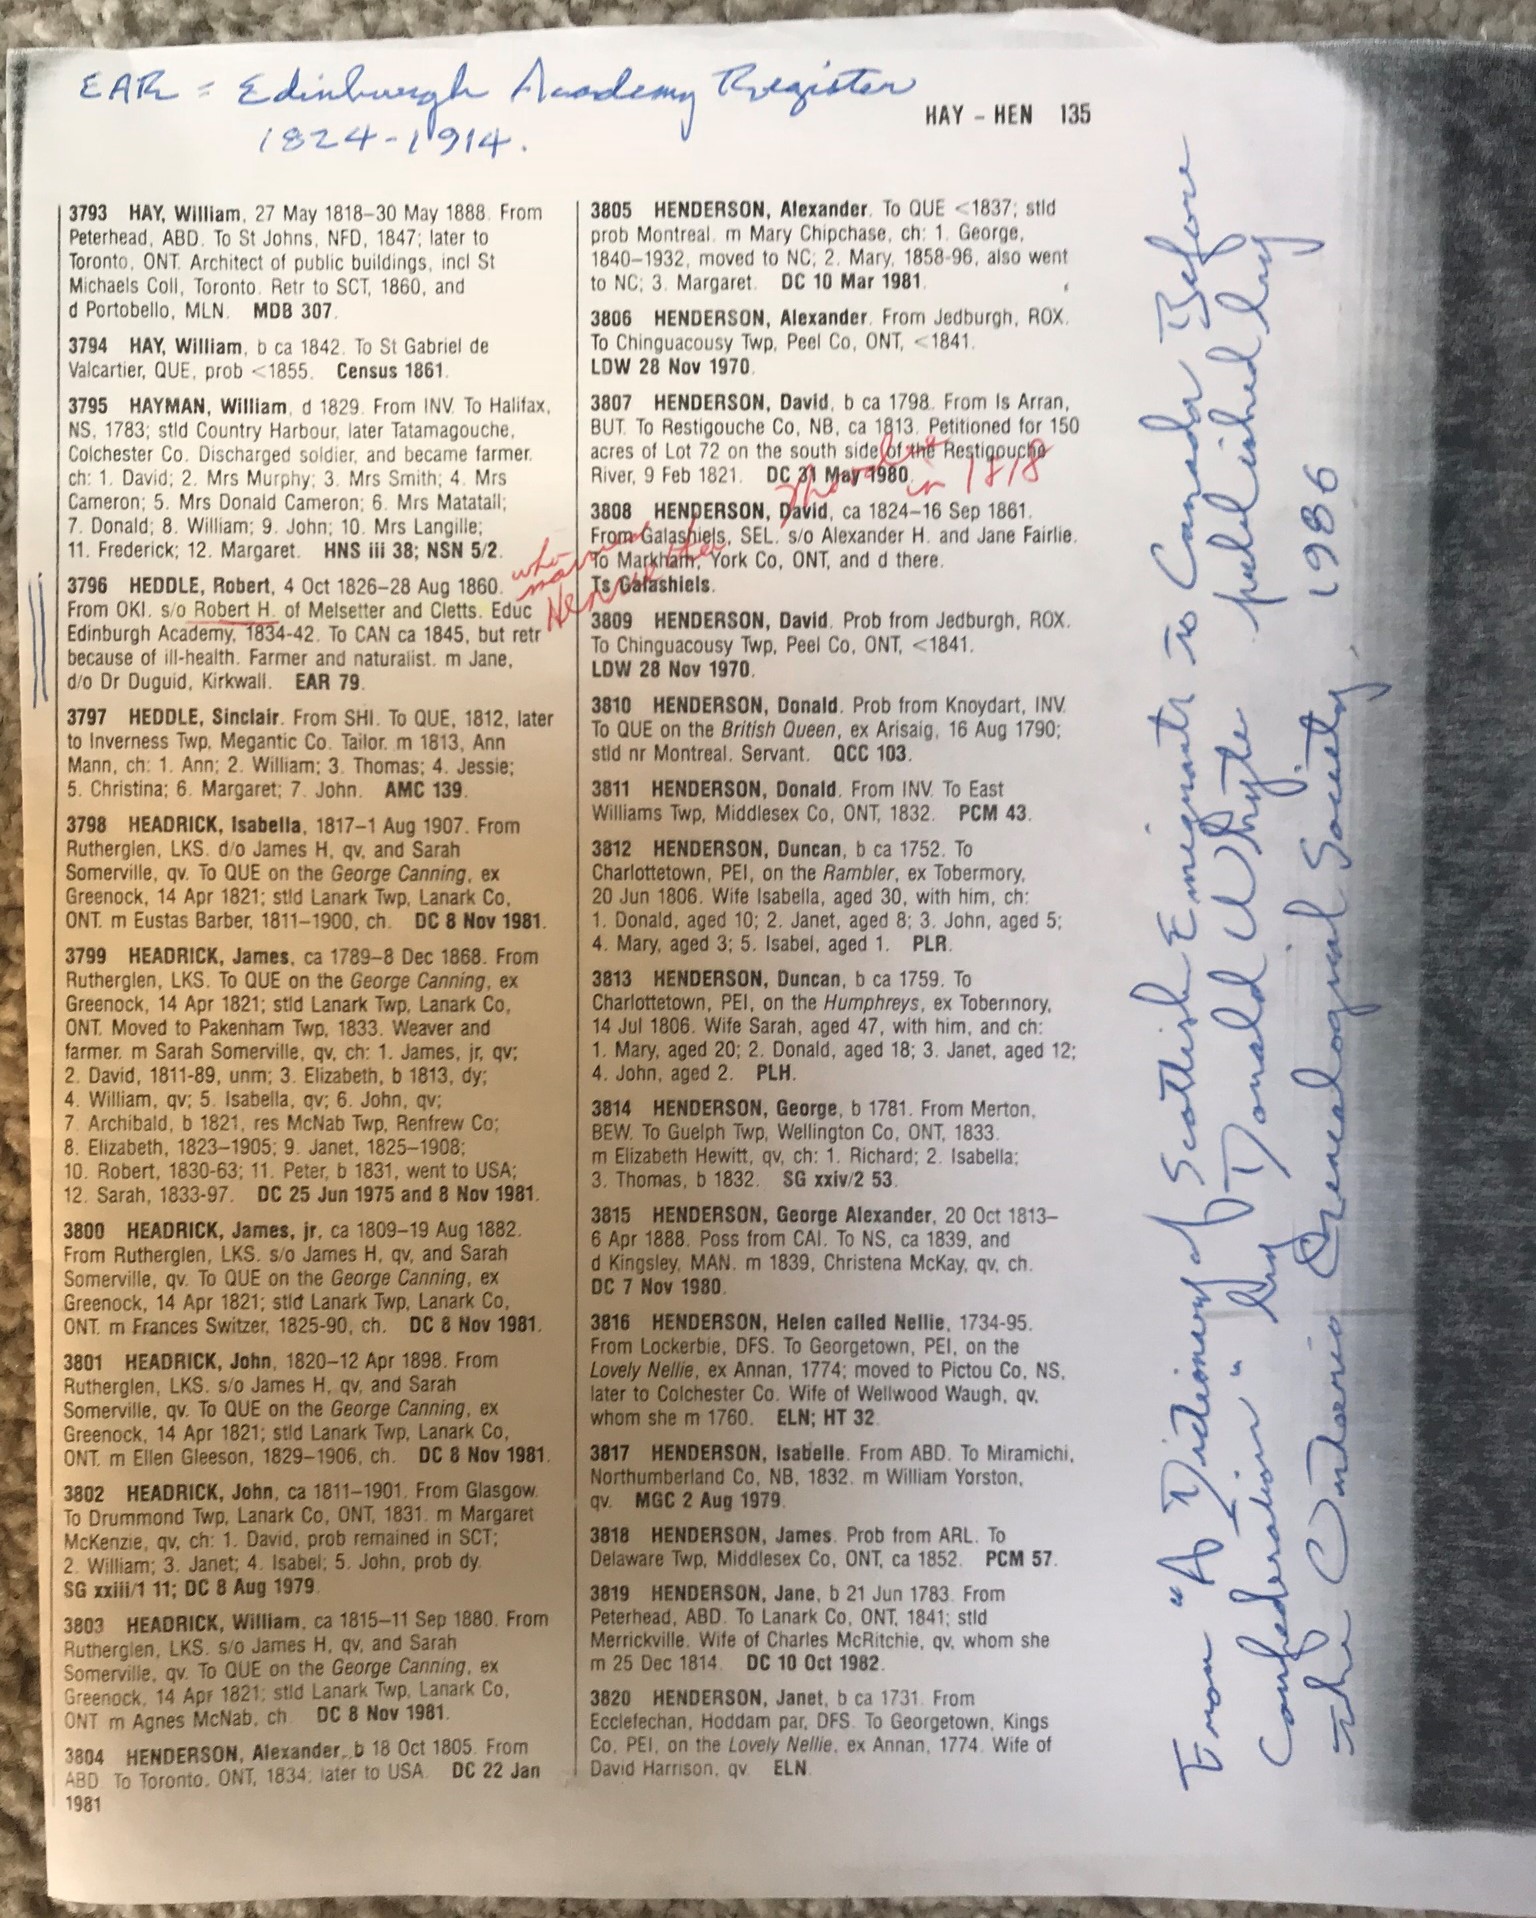 EAR = Edinburgh Academy Register
1824-1914.
HAY – HEN 135
3793 HAY, William, 27 May 1818–30 May 1888. From
Peterhead, ABD. To St Johns, NFD, 1847; later to
Toronto, ONT. Architect of public buildings, incl St
Michaels Coll, Toronto. Retr to SCT, 1860, and
d Portobello, MLN. MDB 307.
3794 HAY, William, b ca 1842. To St Gabriel de
Valcartier, QUE, prob <1855. Census 1861.
3795 HAYMAN, William, d 1829. From INV. To Halifax,
NS, 1783; stld Country Harbour, later Tatamagouche,
Colchester Co. Discharged soldier, and became farmer.
ch: 1. David; 2. Mrs Murphy; 3. Mrs Smith; 4. Mrs
Cameron; 5. Mrs Donald Cameron; 6. Mrs Matatall;
7. Donald; 8. William; 9. John; 10. Mrs Langille;
11. Frederick; 12. Margaret. HNS iii 38; NSN 5/2.
3796 HEDDLE, Robert, 4 Oct 1826–28 Aug 1860.
From OKI. s/o Robert H. of Melsetter and Cletts. Educ
Edinburgh Academy, 1834-42. To CAN ca 1845, but retr
because of ill-health. Farmer and naturalist. m Jane,
d/o Dr Duguid, Kirkwall. EAR 79.
who married Henrietta
in 1818
3797 HEDDLE, Sinclair. From SHI. To QUE, 1812, later
to Inverness Twp, Megantic Co. Tailor. m 1813, Ann
Mann, ch: 1. Ann; 2. William; 3. Thomas; 4. Jessie;
5. Christina; 6. Margaret; 7. John. AMC 139.
3798 HEADRICK, Isabella, 1817–1 Aug 1907. From
Rutherglen, LKS. d/o James H, qv, and Sarah
Somerville, qv. To QUE on the George Canning, ex
Greenock, 14 Apr 1821; stld Lanark Twp, Lanark Co,
ONT. m Eustas Barber, 1811–1900, ch. DC 8 Nov 1981.
3799 HEADRICK, James, ca 1789–8 Dec 1868. From
Rutherglen, LKS. To QUE on the George Canning, ex
Greenock, 14 Apr 1821; stld Lanark Twp, Lanark Co,
ONT. Moved to Pakenham Twp, 1833. Weaver and
farmer. m Sarah Somerville, qv, ch: 1. James, jr, qv;
2. David, 1811-89, unm; 3. Elizabeth, b 1813, dy;
4. William, qv; 5. Isabella, qv; 6. John, qv;
7. Archibald, b 1821, res McNab Twp, Renfrew Co;
8. Elizabeth, 1823–1905; 9. Janet, 1825–1908;
10. Robert, 1830-63; 11. Peter, b 1831, went to USA;
12. Sarah, 1833-97. DC 25 Jun 1975 and 8 Nov 1981.
3800 HEADRICK, James, jr, ca 1809–19 Aug 1882.
From Rutherglen, LKS. s/o James H, qv, and Sarah
Somerville, qv. To QUE on the George Canning, ex
Greenock, 14 Apr 1821; stld Lanark Twp, Lanark Co,
ONT. m Frances Switzer, 1825-90, ch. DC 8 Nov 1981.
3801 HEADRICK, John, 1820–12 Apr 1898. From
Rutherglen, LKS. s/o James H, qv, and Sarah
Somerville, qv. To QUE on the George Canning, ex
Greenock, 14 Apr 1821; stld Lanark Twp, Lanark Co,
ONT. m Ellen Gleeson, 1829–1906, ch. DC 8 Nov 1981.
3802 HEADRICK, John, ca 1811–1901. From Glasgow.
To Drummond Twp, Lanark Co, ONT, 1831. m Margaret
McKenzie, qv, ch: 1. David, prob remained in SCT;
2. William; 3. Janet; 4. Isabel; 5. John, prob dy.
SG xxiii/1 11; DC 8 Aug 1979.
3803 HEADRICK, William, ca 1815–11 Sep 1880. From
Rutherglen, LKS. s/o James H, qv, and Sarah
Somerville, qv. To QUE on the George Canning, ex
Greenock, 14 Apr 1821; stld Lanark Twp, Lanark Co,
ONT. m Agnes McNab, ch. DC 8 Nov 1981.
3804 HENDERSON, Alexander, b 18 Oct 1805. From
ABD. To Toronto, ONT, 1834; later to USA. DC 22 Jan
1981
3805 HENDERSON, Alexander. To QUE <1837; stld
prob Montreal. m Mary Chipchase, ch: 1. George,
1840–1932, moved to NC; 2. Mary, 1858-96, also went
to NC; 3. Margaret. DC 10 Mar 1981.
3806 HENDERSON, Alexander. From Jedburgh, ROX.
To Chinguacousy Twp, Peel Co, ONT, <1841.
LDW 28 Nov 1970.
3807 HENDERSON, David, b ca 1798. From Is Arran,
BUT. To Restigouche Co, NB, ca 1813. Petitioned for 150
acres of Lot 72 on the south side of the Restigouche
River, 9 Feb 1821. DC 31 May 1980.
3808 HENDERSON, David, ca 1824–16 Sep 1861.
From Galashiels, SEL. s/o Alexander H. and Jane Fairlie.
To Markham, York Co, ONT, and d there.
Ts Galashiels.
3809 HENDERSON, David. Prob from Jedburgh, ROX.
To Chinguacousy Twp, Peel Co, ONT, <1841.
LDW 28 Nov 1970.
3810 HENDERSON, Donald. Prob from Knoydart, INV.
To QUE on the British Queen, ex Arisaig, 16 Aug 1790;
stld nr Montreal. Servant. QCC 103.
3811 HENDERSON, Donald. From INV. To East
Williams Twp, Middlesex Co, ONT, 1832. PCM 43.
3812 HENDERSON, Duncan, b ca 1752. To
Charlottetown, PEI, on the Rambler, ex Tobermory,
20 Jun 1806. Wife Isabella, aged 30, with him, ch:
1. Donald, aged 10; 2. Janet, aged 8; 3. John, aged 5;
4. Mary, aged 3; 5. Isabel, aged 1. PLR.
3813 HENDERSON, Duncan, b ca 1759. To
Charlottetown, PEI, on the Humphreys, ex Tobermory,
14 Jul 1806. Wife Sarah, aged 47, with him, and ch:
1. Mary, aged 20; 2. Donald, aged 18; 3. Janet, aged 12;
4. John, aged 2. PLH.
3814 HENDERSON, George, b 1781. From Merton,
BEW. To Guelph Twp, Wellington Co, ONT, 1833.
m Elizabeth Hewitt, qv, ch: 1. Richard; 2. Isabella;
3. Thomas, b 1832. SG xxiv/2 53.
3815 HENDERSON, George Alexander, 20 Oct 1813–
6 Apr 1888. Poss from CAI. To NS, ca 1839, and
d Kingsley, MAN. m 1839, Christena McKay, qv, ch.
DC 7 Nov 1980.
3816 HENDERSON, Helen called Nellie, 1734-95.
From Lockerbie, DFS. To Georgetown, PEI, on the
Lovely Nellie, ex Annan, 1774; moved to Pictou Co, NS,
later to Colchester Co. Wife of Wellwood Waugh, qv,
whom she m 1760. ELN; HT 32.
3817 HENDERSON, Isabelle. From ABD. To Miramichi,
Northumberland Co, NB, 1832. m William Yorston,
qv. MGC 2 Aug 1979.
3818 HENDERSON, James. Prob from ARL. To
Delaware Twp, Middlesex Co, ONT, ca 1852. PCM 57.
3819 HENDERSON, Jane, b 21 Jun 1783. From
Peterhead, ABD. To Lanark Co, ONT, 1841; stld
Merrickville. Wife of Charles McRitchie, qv, whom she
m 25 Dec 1814. DC 10 Oct 1982.
3820 HENDERSON, Janet, b ca 1731. From
Ecclefechan, Hoddam par, DFS. To Georgetown, Kings
Co, PEI, on the Lovely Nellie, ex Annan, 1774. Wife of
David Harrison, qv. ELN.
From "A Dictionary of Scottish Emigrants to Canada Before
Confederation" by Donald Whyte published by
the Ontario Genealogical Society, 1986